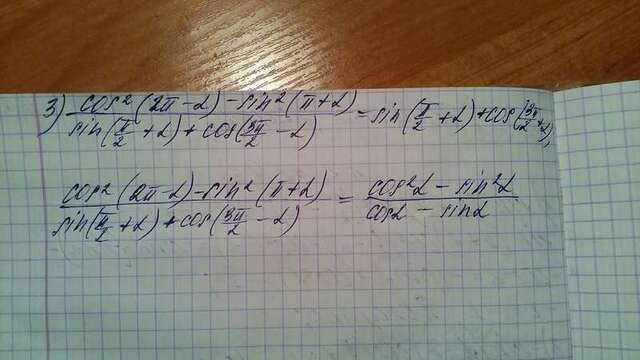 3) cos²(2π-α)-sin²(π+α) / sin(π/2+α)+cos(3π/2-α) = sin(π/2+α)+cos(3π/2+α),
cos²(2π-α)-sin²(π+α) / sin(π/2+α)+cos(3π/2-α) = cos²α-sin²α / cosα-sinα